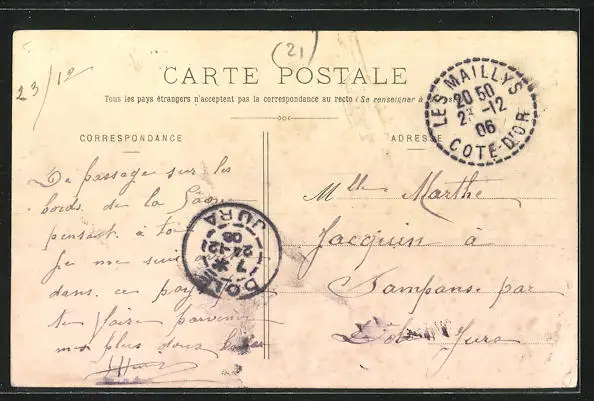 (21)
23/12
CARTE POSTALE
Tous les pays étrangers n'acceptent pas la correspondance au recto (Se renseigner à
CORRESPONDANCE
ADRESSE
LES MAILLYS
20 50
23 -12
06
COTE-D'OR
De passage sur les
bords de la Saône
pensant à toi
je me suis
dans ce
te faire parvenir
mes plus doux
DOLE
7
24-12
06
JURA
Mlle Marthe
Jacquin à
Sampans par
Dôle Jura